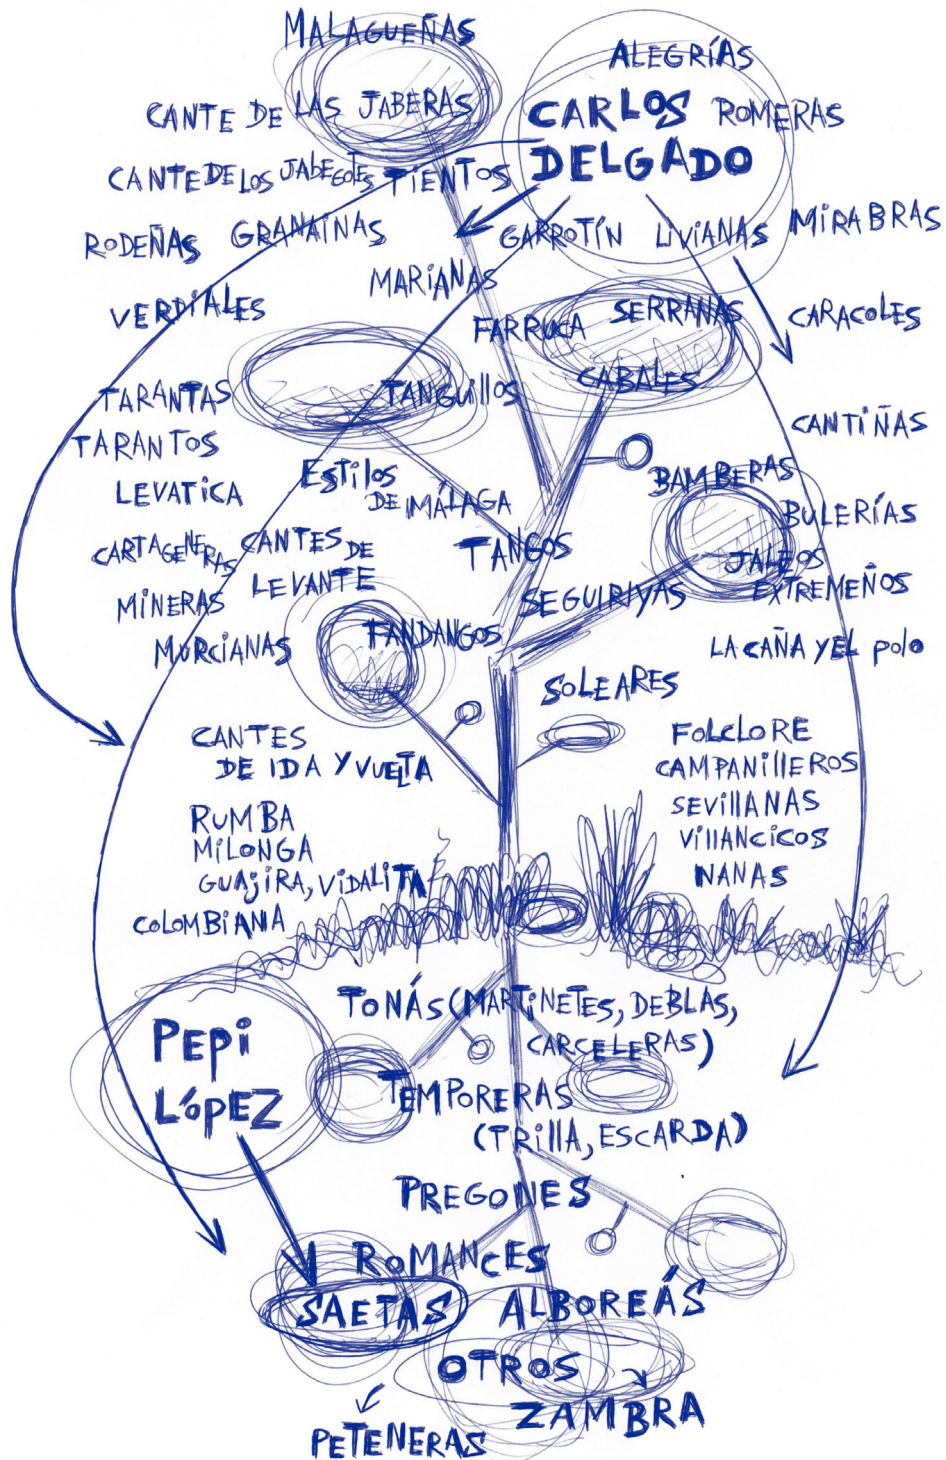 MALAGUEÑAS
ALEGRÍAS
CANTE DE LAS JABERAS
CARLOS
DELGADO
ROMERAS
CANTE DE LOS JABEGOTES
TIENTOS
RODEÑAS
GRANAÍNAS
GARROTÍN
LIVIANAS
MIRABRAS
MARIANAS
VERDIALES
FARRUCA
SERRANAS
CARACOLES
TARANTAS
TANGUILLOS
CABALES
TARANTOS
CANTIÑAS
LEVATICA
ESTILOS
DE MÁLAGA
BAMBERAS
BULERÍAS
CARTAGENERAS
CANTES DE
LEVANTE
TANGOS
JALEOS
EXTREMEÑOS
MINERAS
SEGUIRIYAS
MURCIANAS
FANDANGOS
LA CAÑA Y EL POLO
SOLEARES
CANTES
DE IDA Y VUELTA
FOLCLORE
CAMPANILLEROS
SEVILLANAS
VILLANCICOS
NANAS
RUMBA
MILONGA
GUAJIRA, VIDALITA
COLOMBIANA
TONÁS (MARTINETES, DEBLAS,
CARCELERAS)
PEPI
LÓPEZ
TEMPORERAS
(TRILLA, ESCARDA)
PREGONES
ROMANCES
SAETAS
ALBOREÁS
OTROS
ZAMBRA
PETENERAS